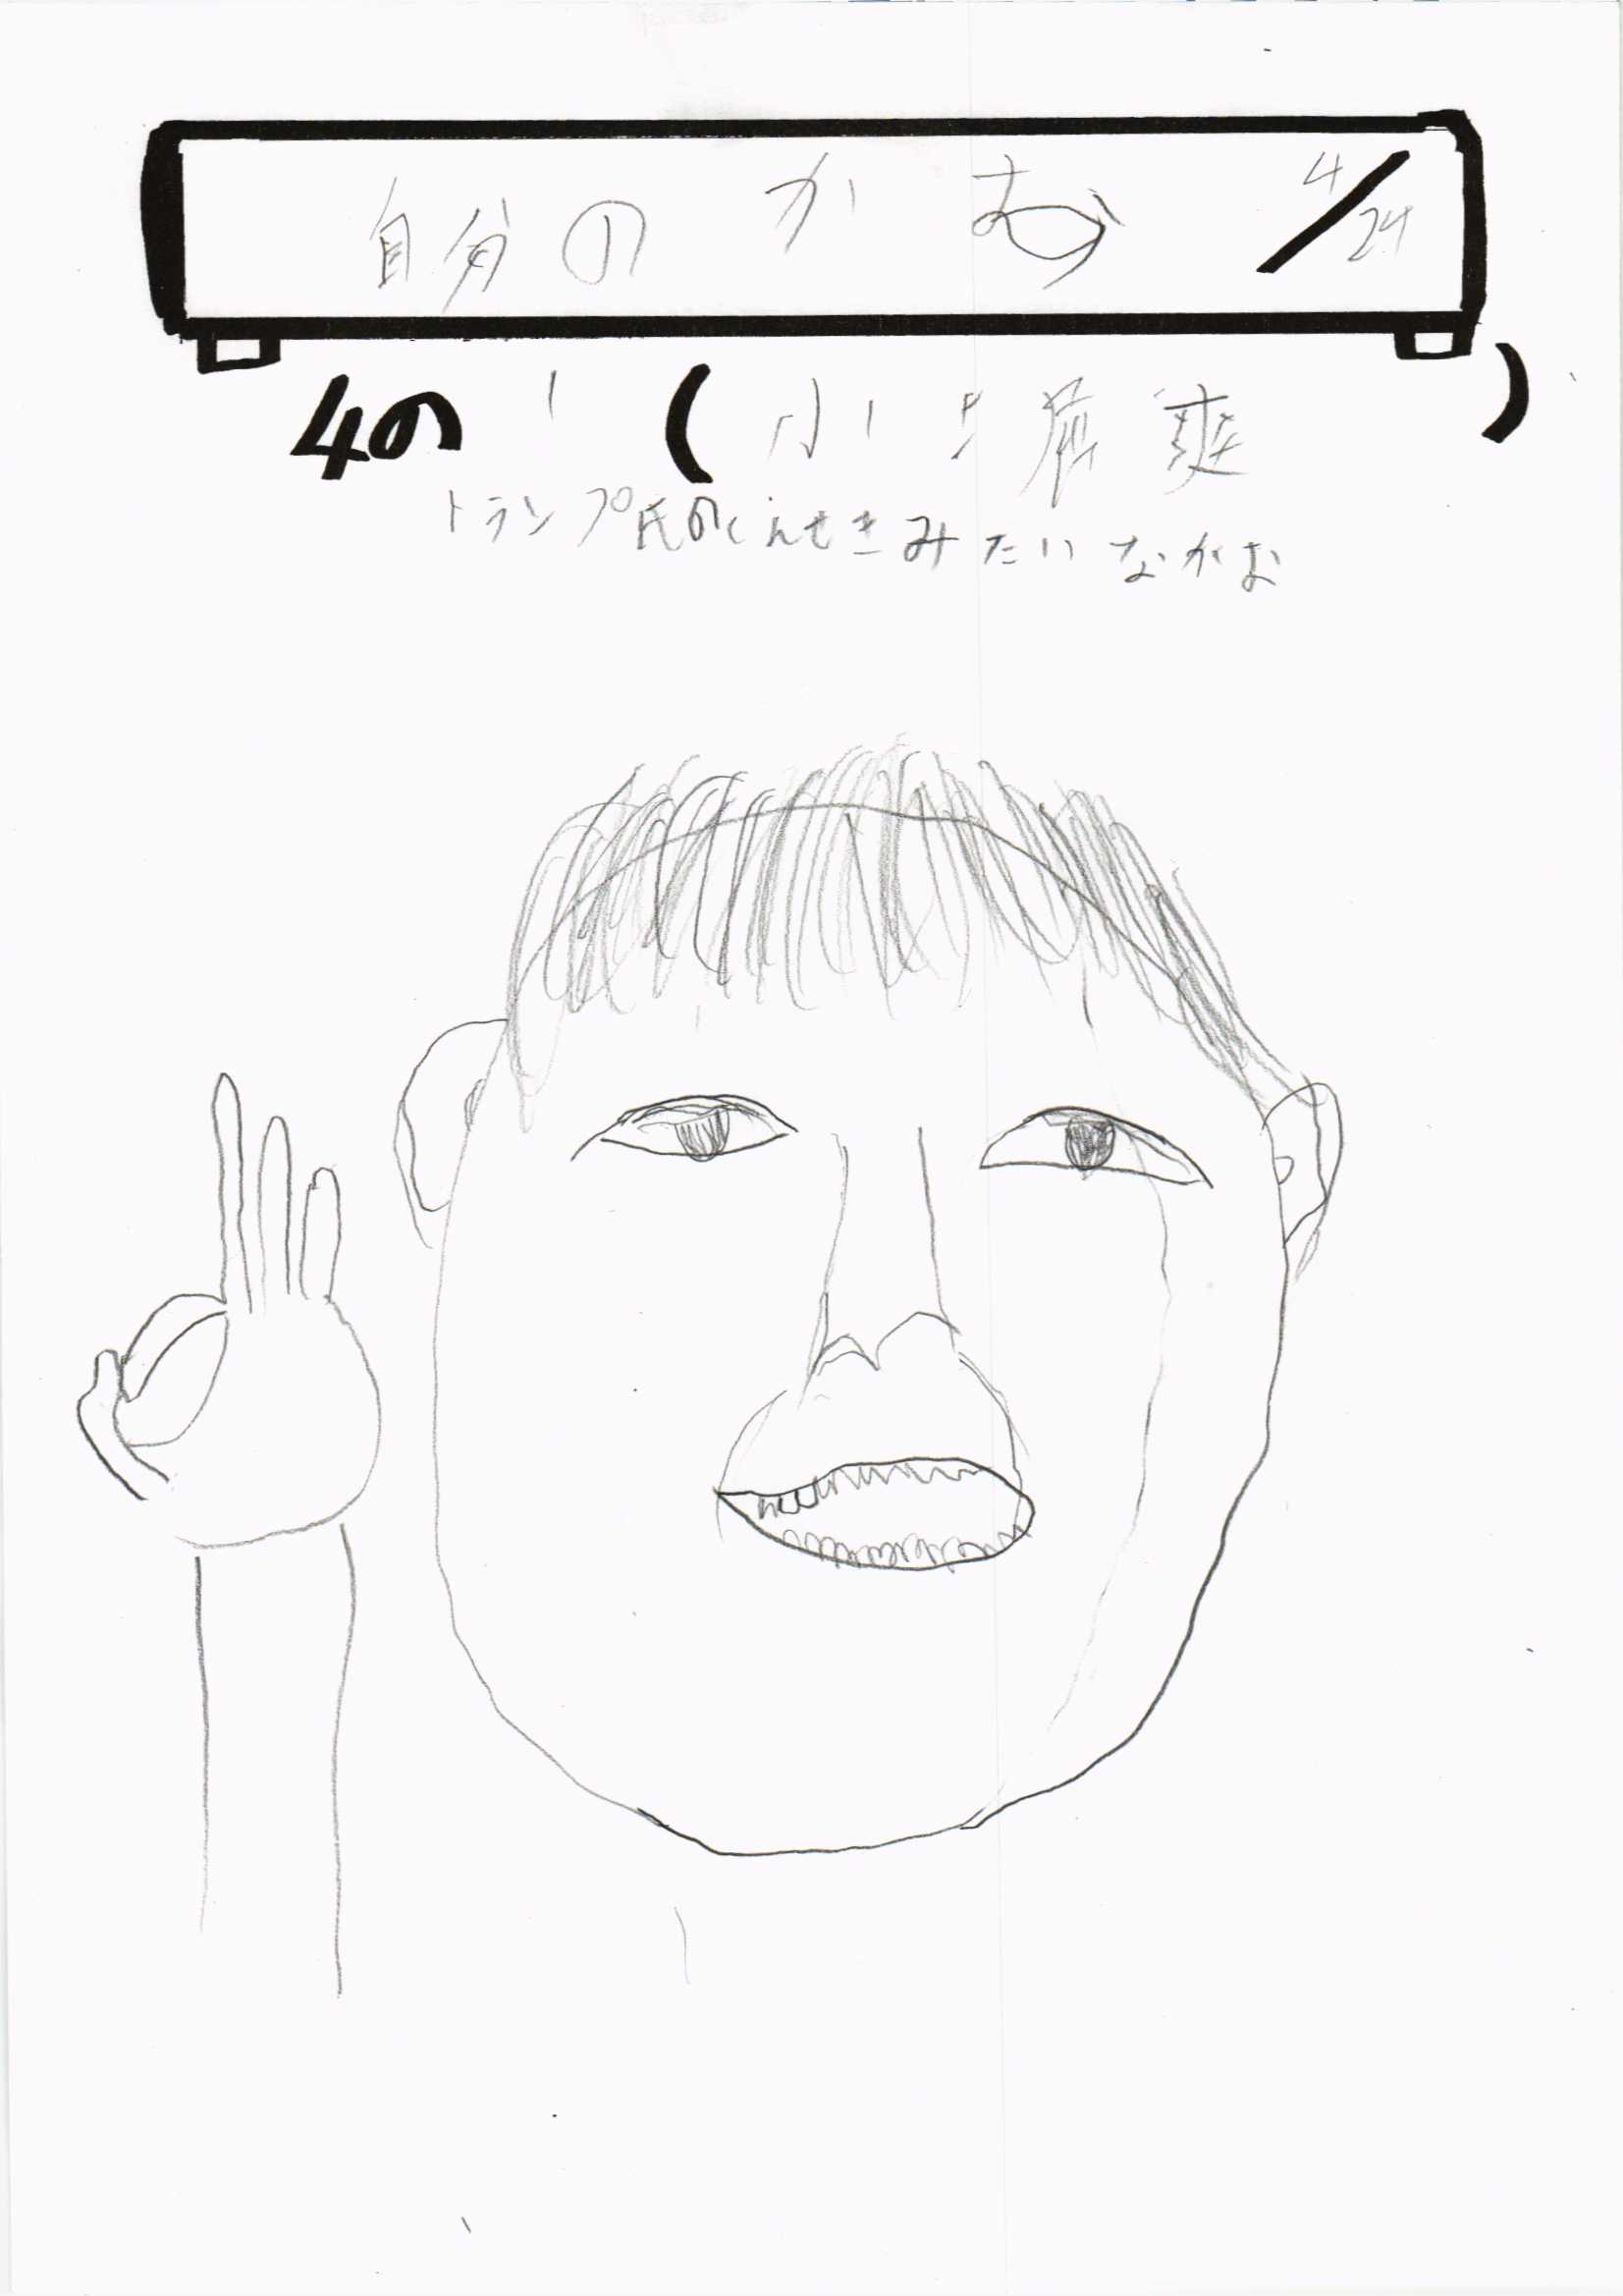 自分のかお 4/24
4の1 (小 爽)
トランプ氏のしんせきみたいなかお